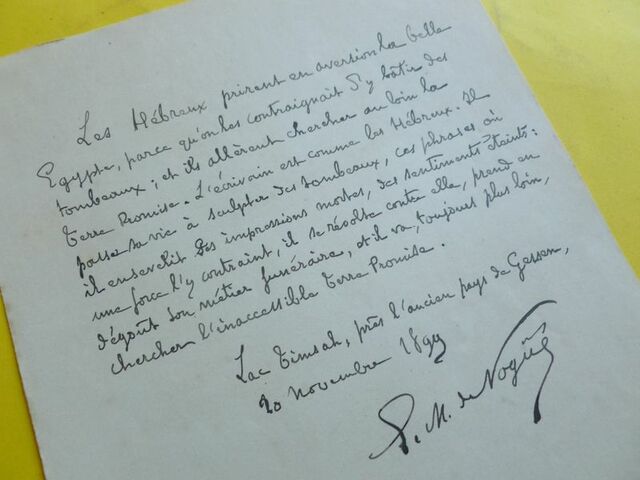 Les Hébreux prirent en aversion la belle
Egypte, parce qu'on les contraignait d'y bâtir des
tombeaux ; et ils allèrent chercher au loin la
terre Promise. L'écrivain est comme les Hébreux. Il
passe sa vie à sculpter des tombeaux, ces phrases où
il ensevelit ses impressions mortes, des sentiments éteints :
une force l'y contraint, il se révolte contre elle, prend en
dégoût son métier funéraire, et il va, toujours plus loin,
chercher l'inaccessible terre Promise.
Lac Timsah, près l'ancien pays de Gessen,
20 novembre 1899
E. M. de Vogüé